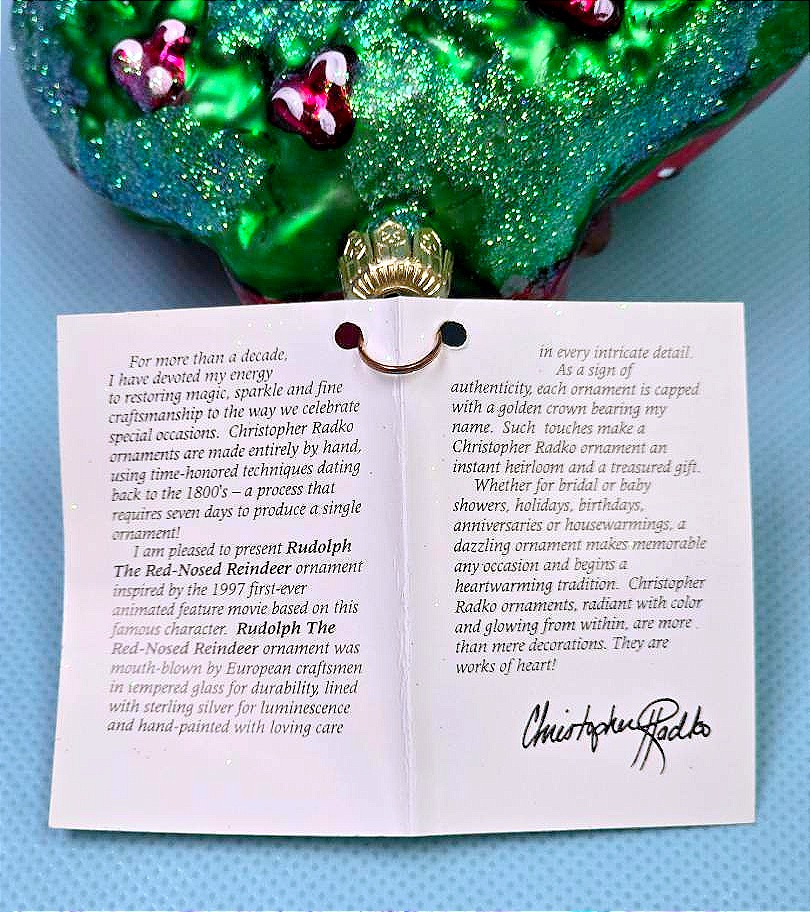 For more than a decade,
I have devoted my energy
to restoring magic, sparkle and fine
craftsmanship to the way we celebrate
special occasions. Christopher Radko
ornaments are made entirely by hand,
using time-honored techniques dating
back to the 1800's – a process that
requires seven days to produce a single
ornament!
I am pleased to present Rudolph
The Red-Nosed Reindeer ornament
inspired by the 1997 first-ever
animated feature movie based on this
famous character. Rudolph The
Red-Nosed Reindeer ornament was
mouth-blown by European craftsmen
in tempered glass for durability, lined
with sterling silver for luminescence
and hand-painted with loving care
in every intricate detail.
As a sign of
authenticity, each ornament is capped
with a golden crown bearing my
name. Such touches make a
Christopher Radko ornament an
instant heirloom and a treasured gift.
Whether for bridal or baby
showers, holidays, birthdays,
anniversaries or housewarmings, a
dazzling ornament makes memorable
any occasion and begins a
heartwarming tradition. Christopher
Radko ornaments, radiant with color
and glowing from within, are more
than mere decorations. They are
works of heart!
Christopher Radko